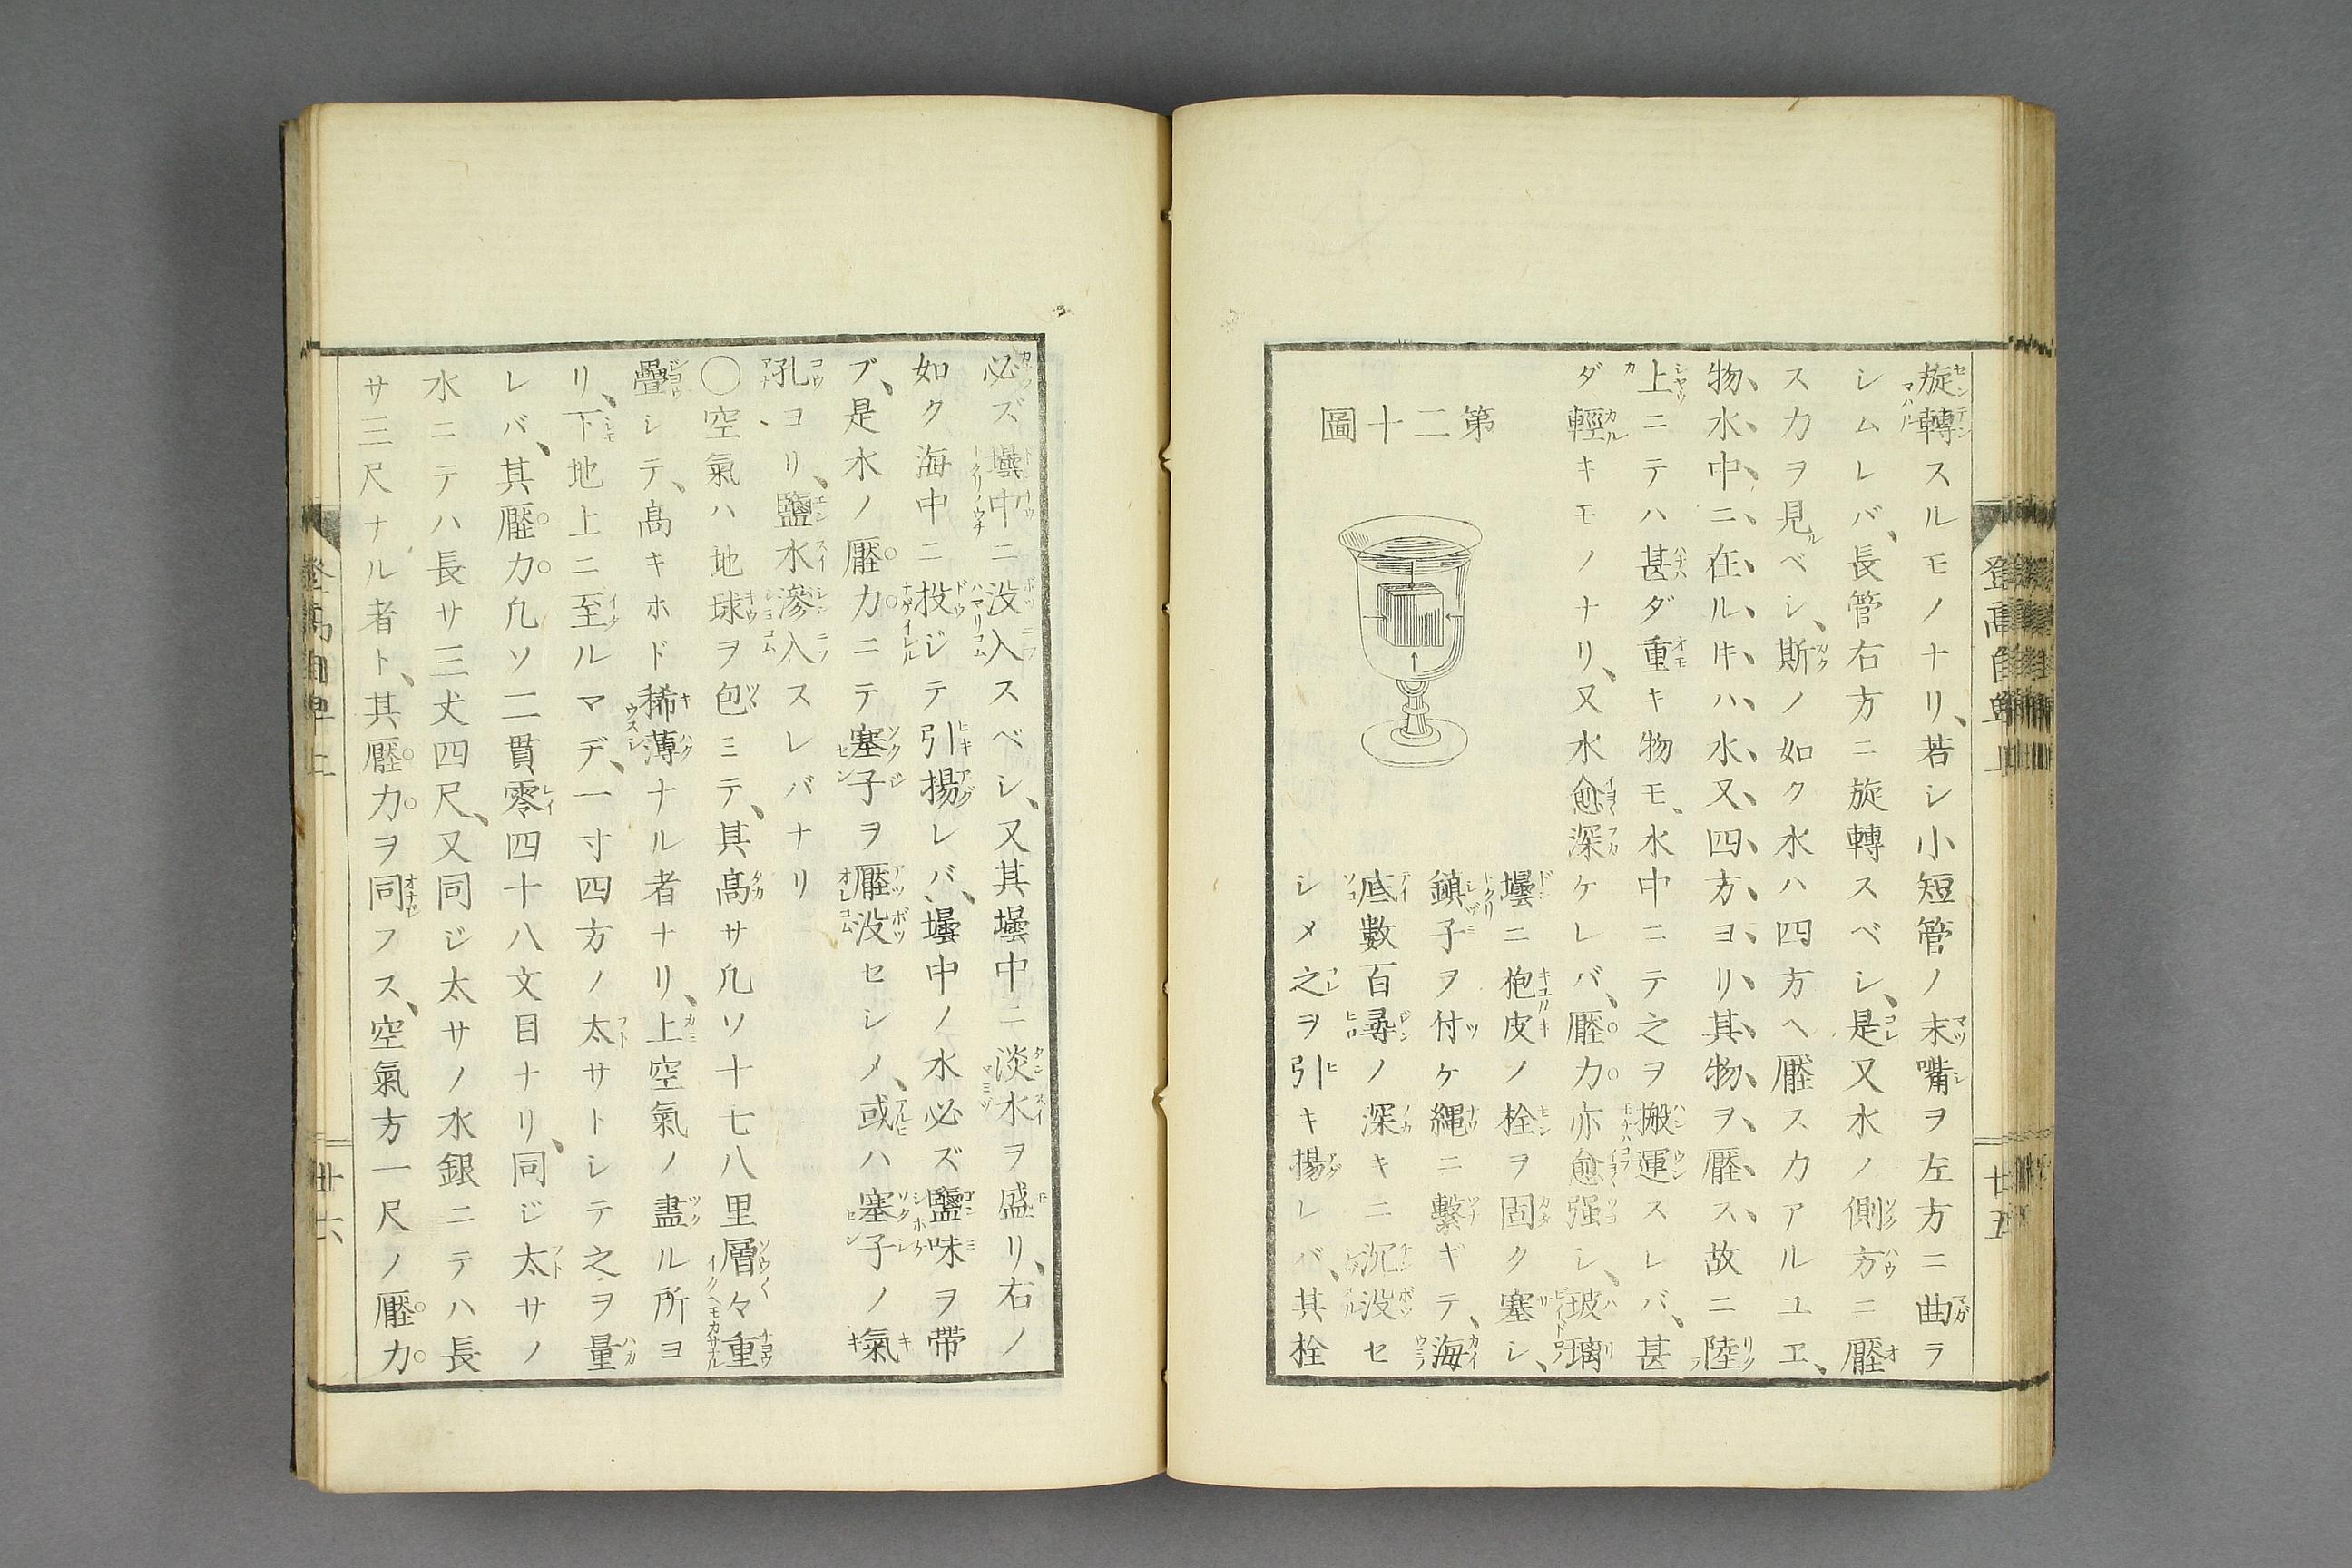 旋轉スルモノナリ、若シ小短管ノ末嘴ヲ左方ニ曲ラ
シムレバ、長管右方ニ旋轉スベシ、是又水ノ側方ニ壓
ス力ヲ見ルベシ、斯ノ如ク水ハ四方ヘ壓ス力アルユヱ、
物、水中ニ在ルキハ水又四方ヨリ其物ヲ壓ス、故ニ陸
上ニテハ甚ダ重キ物モ、水中ニテ之ヲ搬運スレバ、甚
ダ輕キモノナリ、又水愈深ケレバ、壓力亦愈强シ、玻璃
第二十圖
壜ニ枹皮ノ栓ヲ固ク塞シ、
鎮子ヲ付ケ縄ニ繫ギテ、海
底數百尋ノ深キニ沉没セ
シメ之ヲ引キ揚レバ、其栓
登高自卑 上
廿五
必ズ壜中ニ没入スベシ、又其壜中ニ淡水ヲ盛リ、右ノ
如ク海中ニ投ジテ引揚レバ、壜中ノ水必ズ鹽味ヲ帯
ブ、是水ノ壓力ニテ塞子ヲ壓没セシメ、或ハ塞子ノ氣
孔ヨリ、鹽水滲入スレバナリ
〇空氣ハ地球ヲ包ミテ、其髙サ凢ソ十七八里層々重
疊シテ、髙キホド稀薄ナル者ナリ、上空氣ノ盡ル所ヨ
リ、下地上ニ至ルマデ、一寸四方ノ太サトシテ之ヲ量
レバ、其壓力凢ソ二貫零四十八文目ナリ、同ジ太サノ
水ニテハ長サ三丈四尺、又同ジ太サノ水銀ニテハ長
サ三尺ナル者ト、其壓力ヲ同フス、空氣方一尺ノ壓力
登高自卑 上
廿六